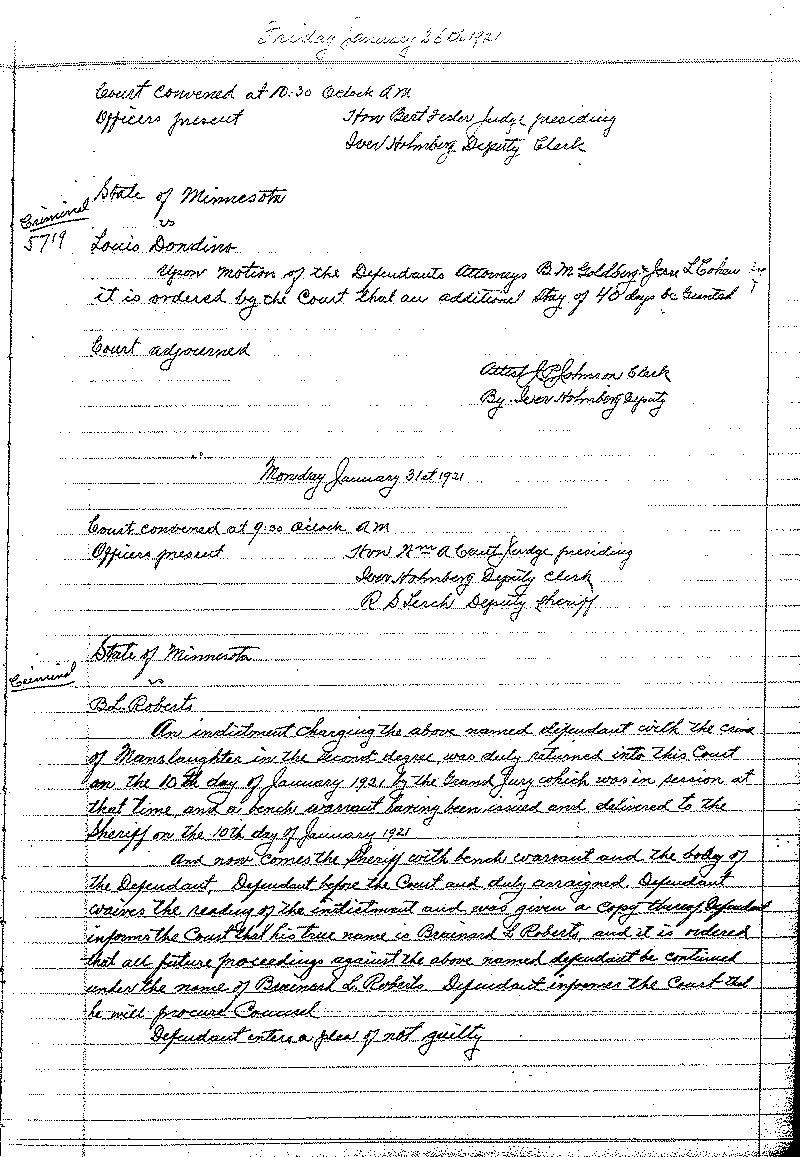 Friday January 26th 1921
Court convened at 10:30 Oclock A M
Officers present Hon Bert Fesler Judge presiding
Iver Holmberg Deputy Clerk
State of Minnesota
Criminal
vs
5719
Louis Dondino
Upon motion of the Defendants Attorneys B M Goldberg & Jesse L Cohen
it is ordered by the Court that an additional stay of 40 days be Granted
Court adjourned
Attest J P Johnson Clerk
By Iver Holmberg Deputy
Monday January 31st 1921
Court convened at 9:30 Oclock A M
Officers present Hon Wm A Cant Judge presiding
Iver Holmberg Deputy Clerk
R S Lerch Deputy Sheriff
State of Minnesota
Criminal
vs
B L Roberts
An indictment charging the above named defendant with the crime
of Manslaughter in the second degree was duly returned into this Court
on the 10th day of January 1921 by the Grand Jury which was in session at
that time, and a bench warrant having been issued and delivered to the
Sheriff on the 10th day of January 1921
And now comes the Sheriff with bench warrant and the body of
the Defendant. Defendant before the Court and duly arraigned. Defendant
waives the reading of the indictment and was given a copy thereof, Defendant
informs the Court that his true name is L Roberts, and it is ordered
that all future proceedings against the above named defendant be continued
under the name of L. Roberts. Defendant informes the Court that
he will procure Counsel
Defendant enters a plea of not guilty